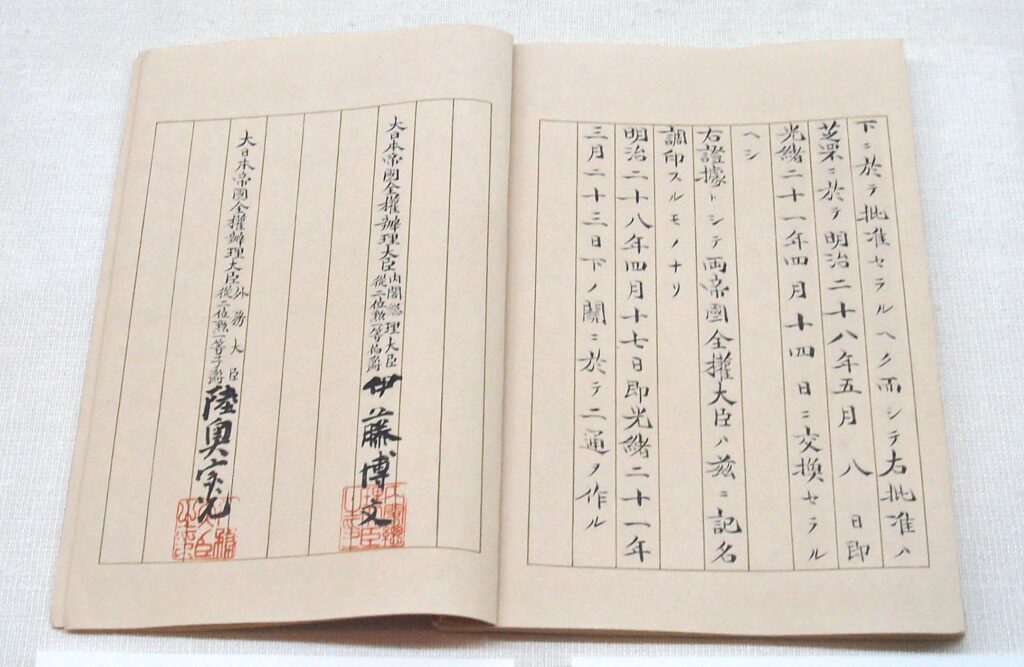 下ニ於テ批准セラルヘク而シテ右批准ハ
芝罘ニ於テ明治二十八年五月八日即
光緒二十一年四月十四日ニ交換セラル
ヘシ
右證據トシテ両帝國全權大臣ハ茲ニ記名
調印スルモノナリ
明治二十八年四月十七日即光緒二十一年
三月二十三日下ノ關ニ於テ二通ヲ作ル
大日本帝國全權辦理大臣
內閣總理大臣
從二位勲一等伯爵
伊藤博文
大日本帝國全權辦理大臣
外務大臣
從二位勲一等子爵
陸奥宗光